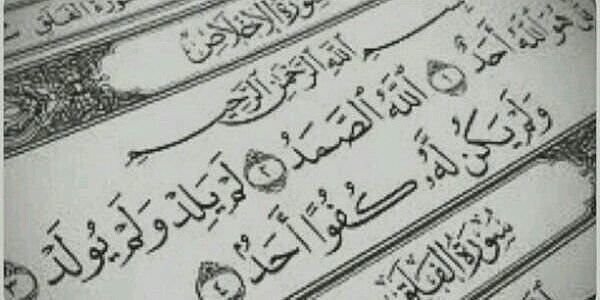 سُورَةُ الفَلَق
سُورَةُ الإِخْلَاصِ
بِسْمِ ٱللَّهِ ٱلرَّحْمَٰنِ ٱلرَّحِيمِ
هُوَ ٱللَّهُ أَحَدٌ ١ ٱللَّهُ ٱلصَّمَدُ ٢ لَمْ يَلِدْ وَلَمْ يُولَدْ ٣
وَلَمْ يَكُن لَّهُۥ كُفُوًا أَحَدٌۢ ٤
سُورَةُ الفَلَق